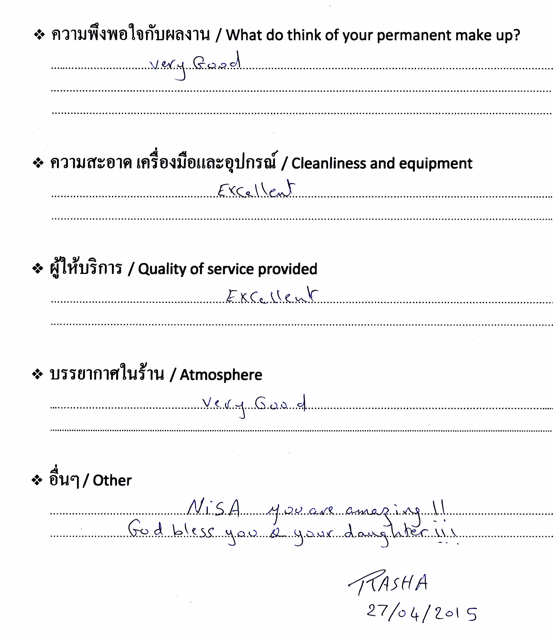 ❖ ความพึงพอใจกับผลงาน / What do think of your permanent make up?
very Good
❖ ความสะอาด เครื่องมือและอุปกรณ์ / Cleanliness and equipment
Excellent
❖ ผู้ให้บริการ / Quality of service provided
Excellent
❖ บรรยากาศในร้าน / Atmosphere
Very Good
❖ อื่นๆ / Other
NiSA you are amazing !!
God bless you & your daughter !!!
RASHA
27/04/2015